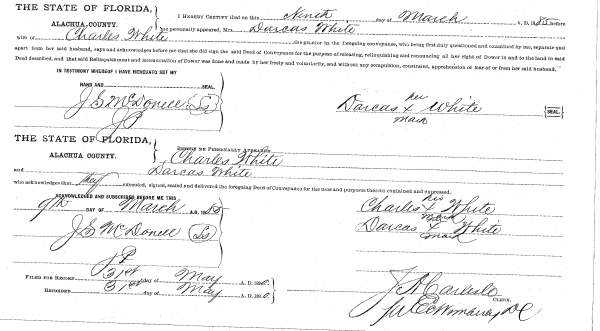 THE STATE OF FLORIDA,
ALACHUA COUNTY.
I HEREBY CERTIFY that on this Nineth day of March A. D. 18 before
me personally appeared Mrs. Darcas White
wife of Charles White the grantor in the foregoing conveyance, who being first duly questioned and examined by me, separate and
apart from her said husband, says and acknowledges before me that she did sign the said Deed of Conveyance for the purpose of releasing, relinquishing and renouncing all her right of Dower in and to the land in said
Deed described, and that said Relinquishment and Renunciation of Dower was done and made by her freely and voluntarily, and without any compulsion, constraint, apprehension or fear of or from her said husband.
IN TESTIMONY WHEREOF I HAVE HEREUNTO SET MY
HAND AND SEAL.
J S McDonell (Ls)
JP
her
Darcas x White [SEAL]
mark
THE STATE OF FLORIDA,
ALACHUA COUNTY.
BEFORE ME PERSONALLY APPEARED
Charles White
and Darcas White
who acknowledges that they executed, signed, sealed and delivered the foregoing Deed of Conveyance for the uses and purposes therein contained and expressed.
ACKNOWLEDGED AND SUBSCRIBED BEFORE ME THIS
9th DAY OF March A.D. 188
J S McDonell (Ls)
JP
his
Charles x White
mark
Darcas x White
mark
FILED FOR RECORD 31st day of May A. D. 188
RECORDED 31st day of May A. D. 188
J A Carlisle
CLERK.
DC